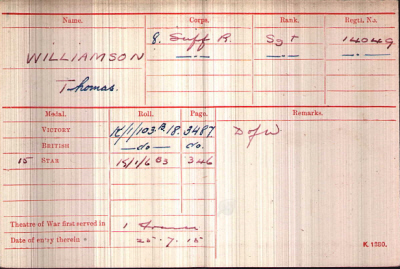 Name. Corps. Rank. Regtl. No.
WILLIAMSON 8. Suff R. Sgt 14049
Thomas.
Medal. Roll. Page. Remarks.
VICTORY K/1/103 B 18. 3487 D of W
BRITISH —do— do.
15 STAR K/1/6 B3 346
Theatre of War first served in 1 France
Date of entry therein 25-7-15
K 1380.